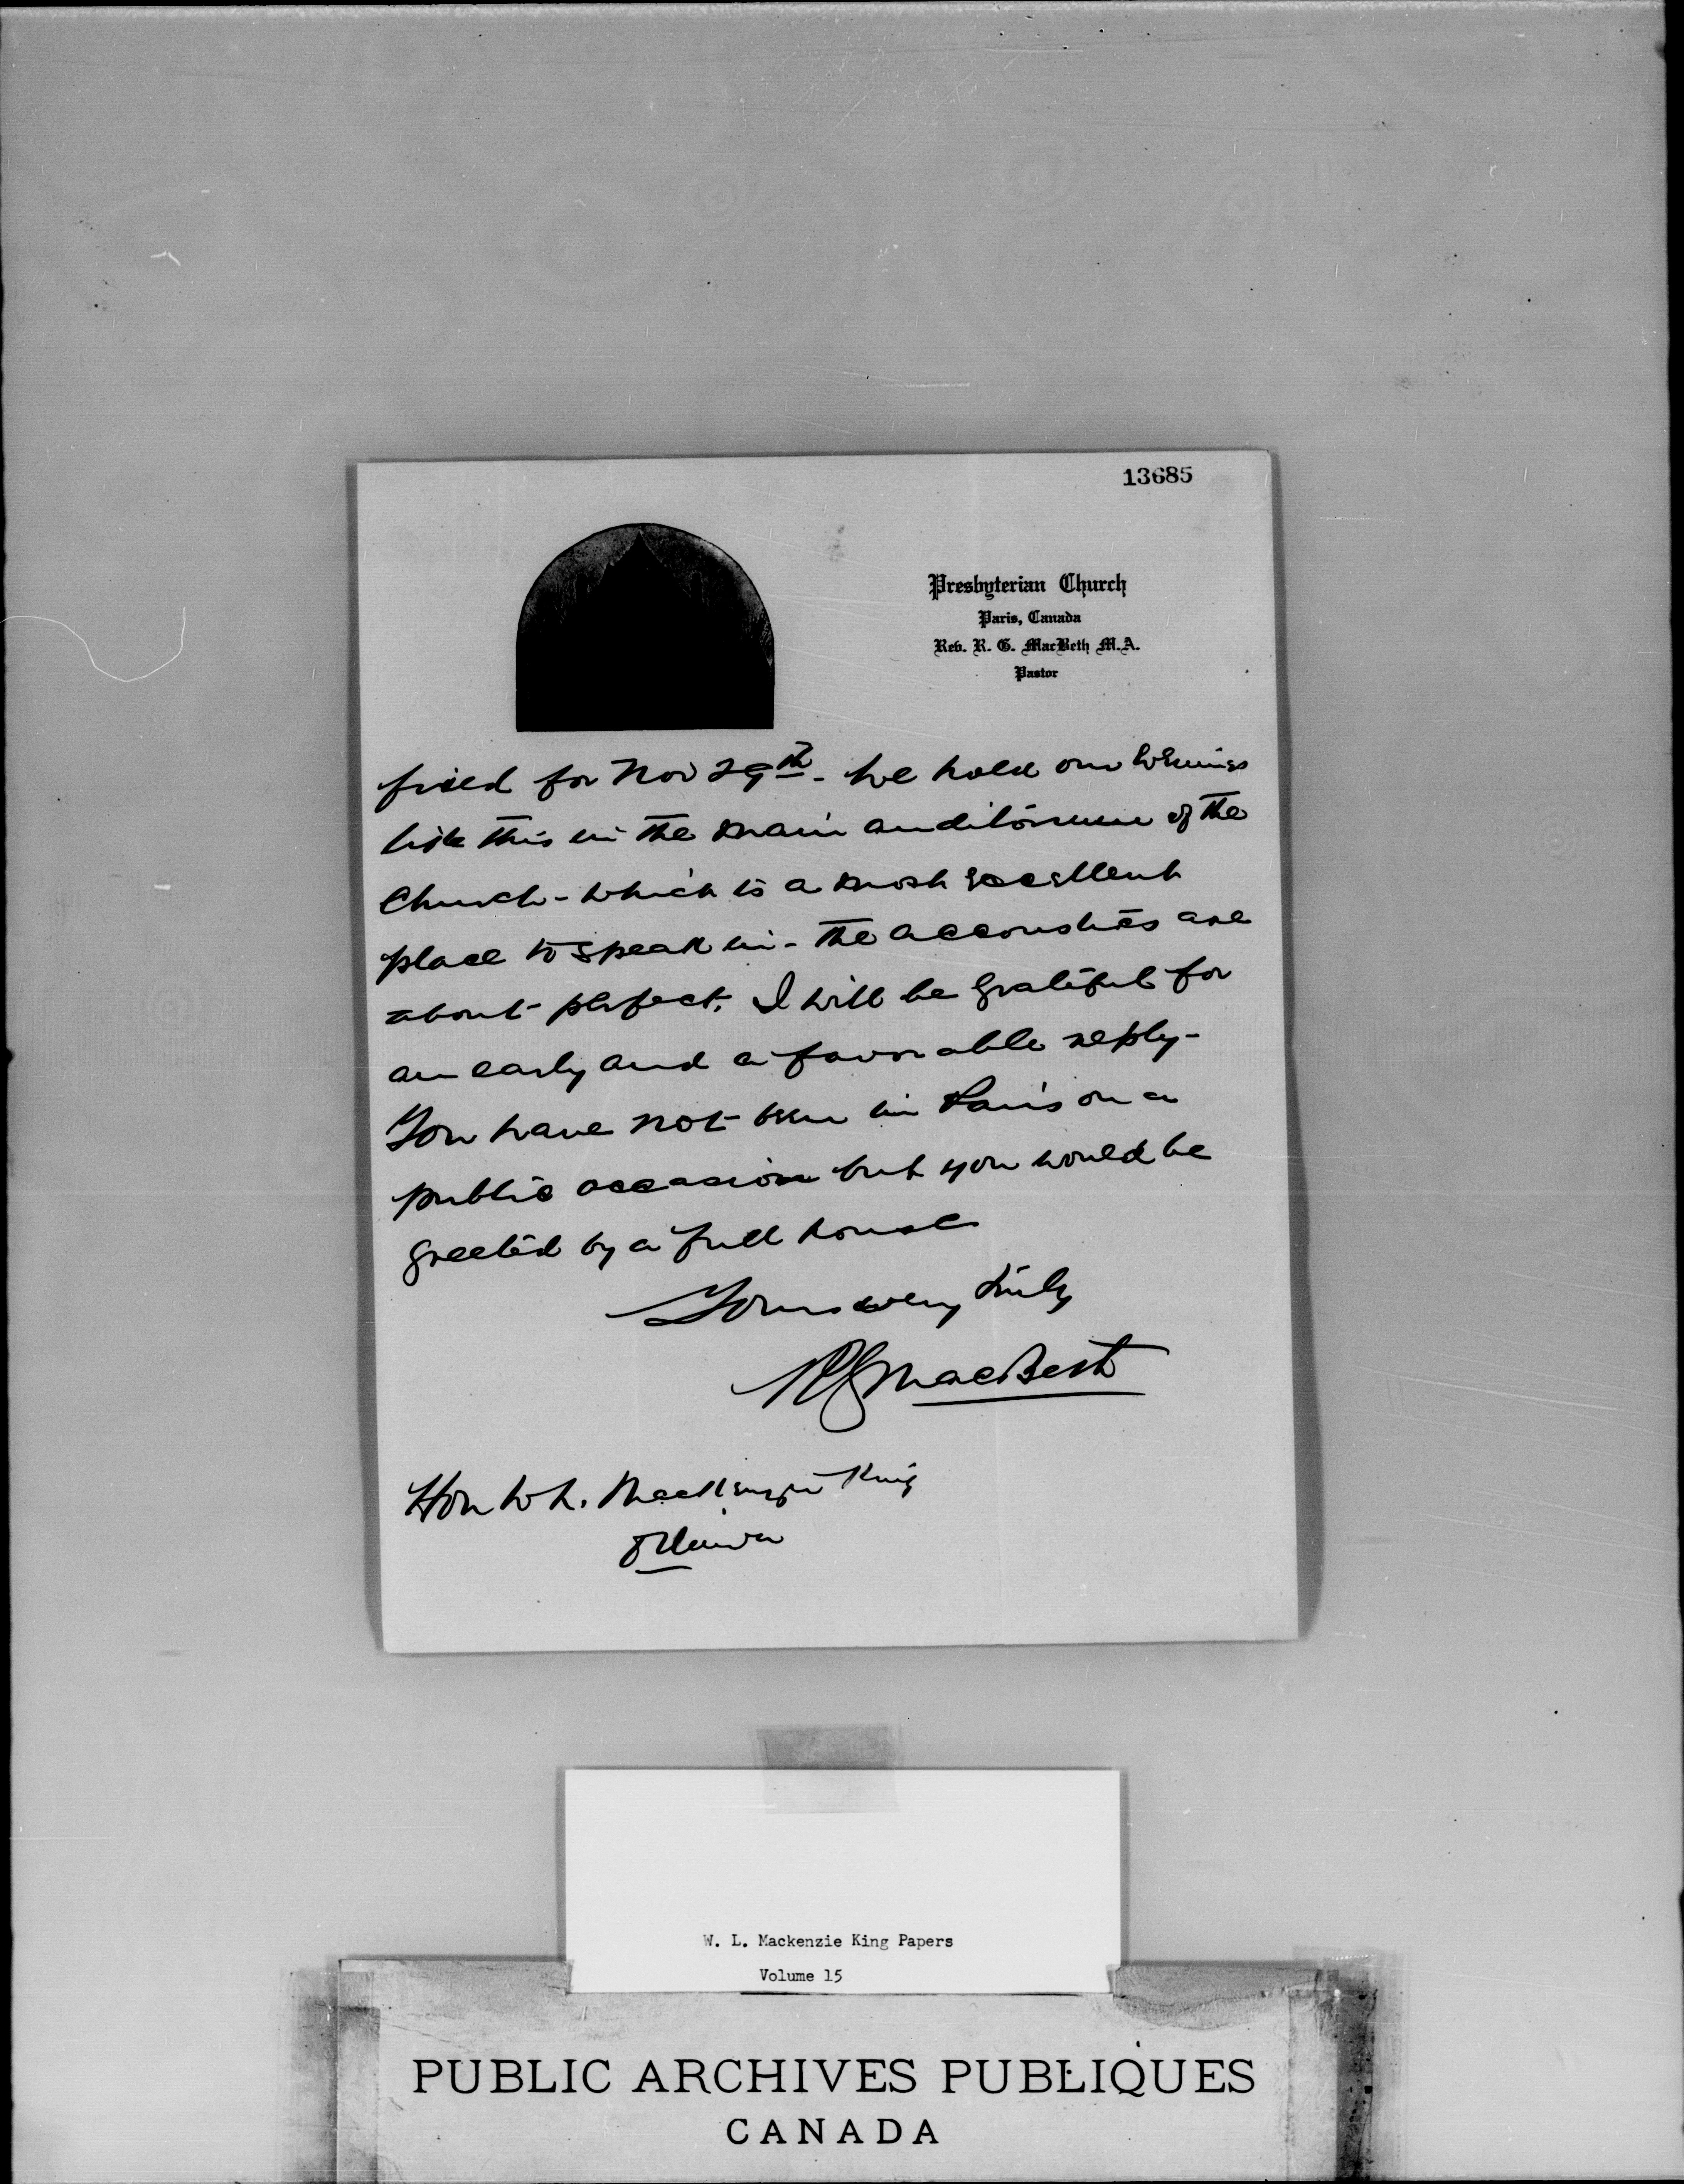 13685
Presbyterian Church
Paris, Canada
Rev. R. G. MacBeth M.A.
Pastor
fixed for Nov 29th - We hold our
like this in the main auditorium of the
Church - which is a most excellent
place to speak in - the accoustics are
about perfect. I will be grateful for
an early and a favorable reply -
You have not been in Paris on a
public occasion but you would be
greeted by a full house
Yours very truly
RGMacBeth
Hon W L. MacKenzie King
Ottawa
W. L. Mackenzie King Papers
Volume 15
PUBLIC ARCHIVES PUBLIQUES
CANADA